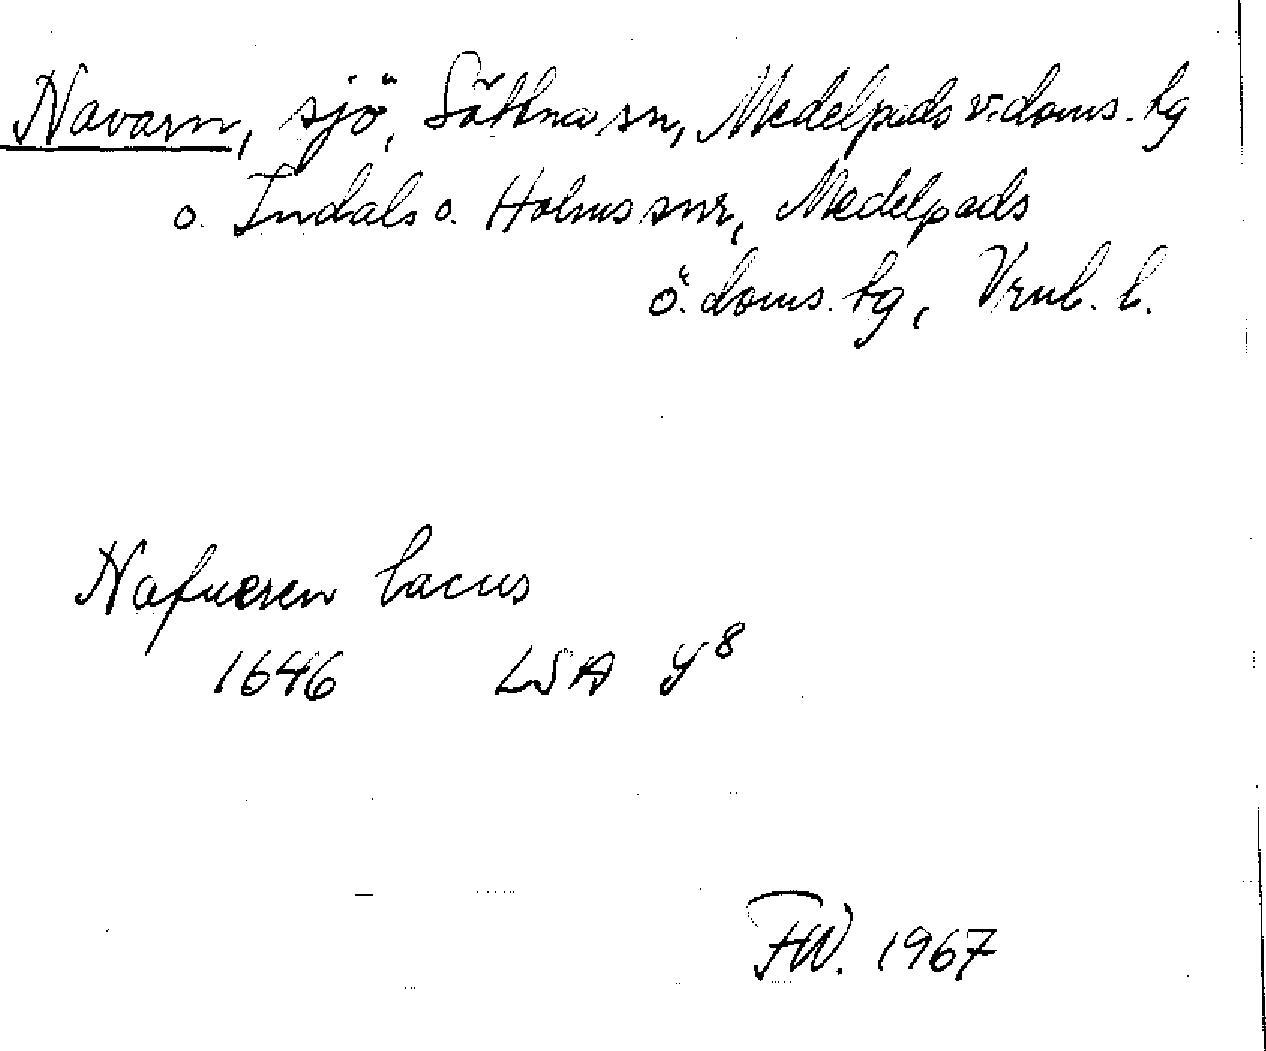 Navarn, sjö, Sättna sn, Medelpads v. doms. hg
o. Indals o. Holms snr, Medelpads
ö. doms. hg, Vrnl. l.
Nafueren lacus
1646 LSA Y8
FW. 1967